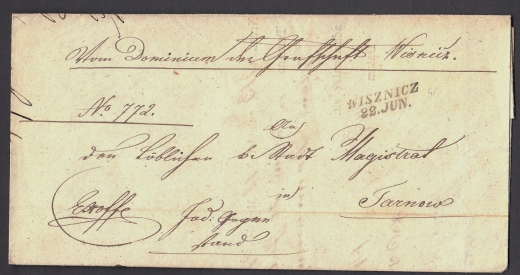 Vom Dominium der Grafschaft Wisnicz.
WISZNICZ
22. JUN.
No 772.
An
den Löblichen k. Stadt Magistrat
in
Tarnow
Exoffo
Jud: Gegen
stand